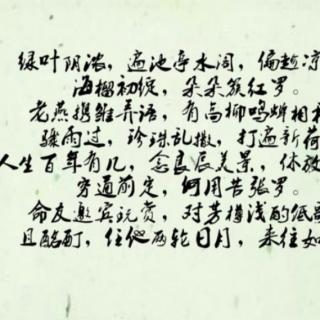 绿叶阴浓，遍池亭水阁，偏趁凉
海榴初绽，朵朵簇红罗。
老燕携雏弄语，有高柳鸣蝉相
骤雨过，珍珠乱撒，打遍新荷
人生百年有几，念良辰美景，休放
穷通前定，何用苦张罗。
命友邀宾玩赏，对芳樽浅酌低歌
且酩酊，任他两轮日月，来往如